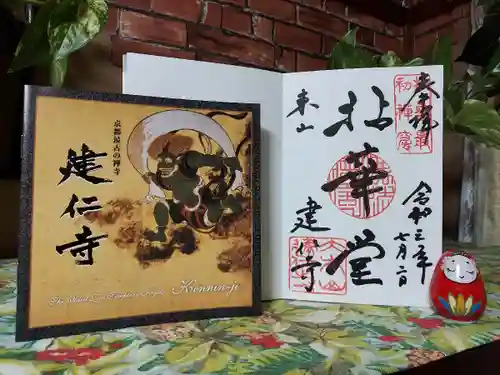 京都最古の禅寺
建仁寺
The Oldest Zen Temple in Kyoto
Kennin-ji
奉拝
令和三年
七月二日
拈華堂
東山
建仁寺